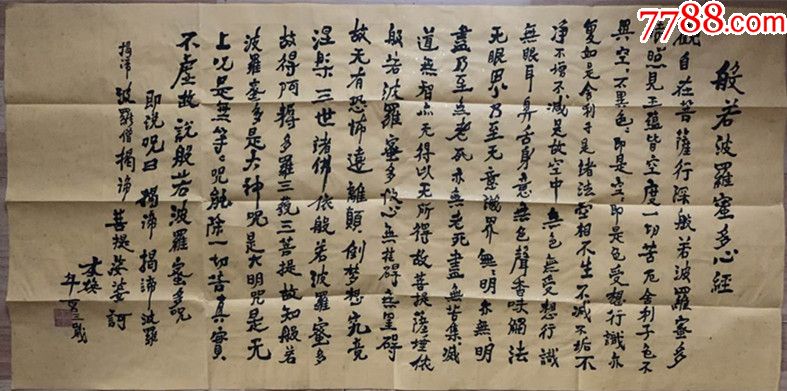 7788.com
般若波羅蜜多心經
觀自在菩薩行深般若波羅蜜多
時照見五蘊皆空度一切苦厄舍利子色不
異空空不異色色即是空空即是色受想行識亦
復如是舍利子是諸法空相不生不滅不垢不
淨不增不減是故空中無色無受想行識
無眼耳鼻舌身意無色聲香味觸法
无眼界乃至无意識界無無明亦無無明
盡乃至無老死亦無老死盡無苦集滅
道無智亦无得以无所得故菩提薩埵依
般若波羅蜜多故心無挂碍無罣碍
故无有恐怖遠離顛倒梦想究竟
涅槃三世諸佛依般若波羅蜜多
故得阿耨多羅三藐三菩提故知般若
波羅蜜多是大神呪是大明呪是无
上呪是無等等呪能除一切苦真實
不虛故說般若波羅蜜多呪
即說呪曰揭諦揭諦波羅
揭諦波羅僧揭諦菩提娑婆訶